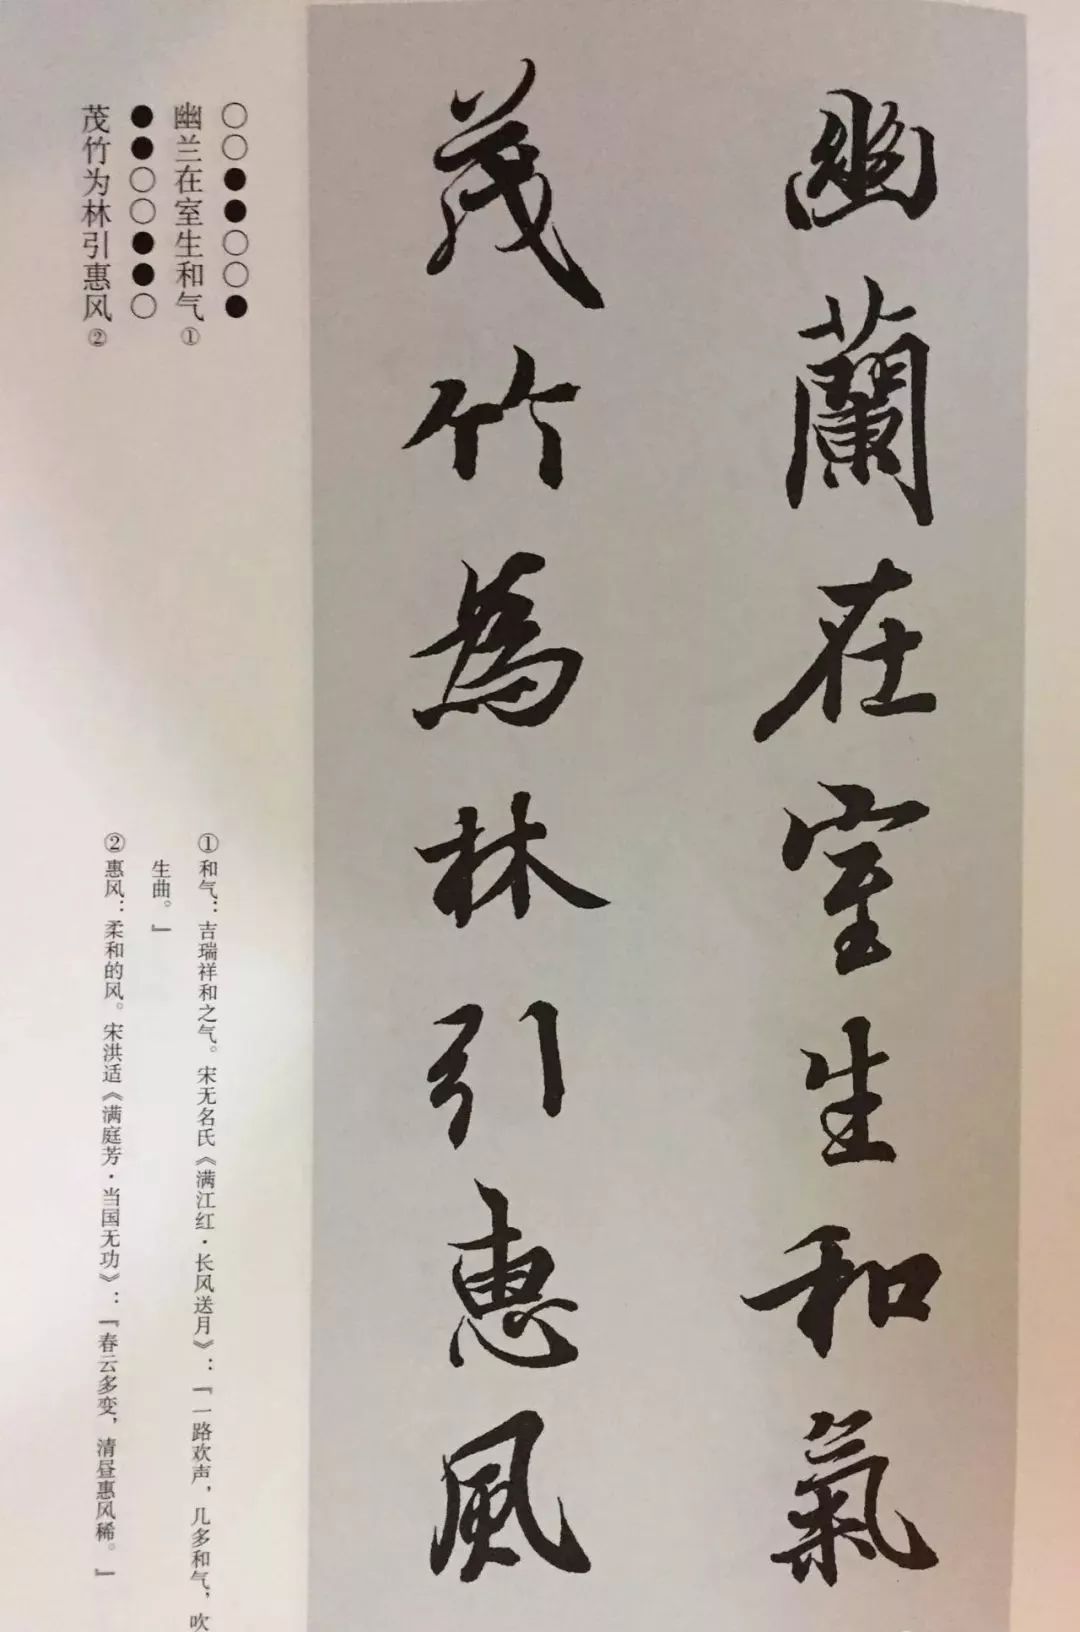 幽蘭在室生和氣
茂竹為林引惠風
○○●●○○●
幽兰在室生和气①
●●○○●●○
茂竹为林引惠风②
①和气：吉瑞祥和之气。宋无名氏《满江红·长风送月》：『一路欢声，几多和气，吹
生曲。』
②惠风：柔和的风。宋洪适《满庭芳·当国无功》：『春云多变，清昼惠风稀。』